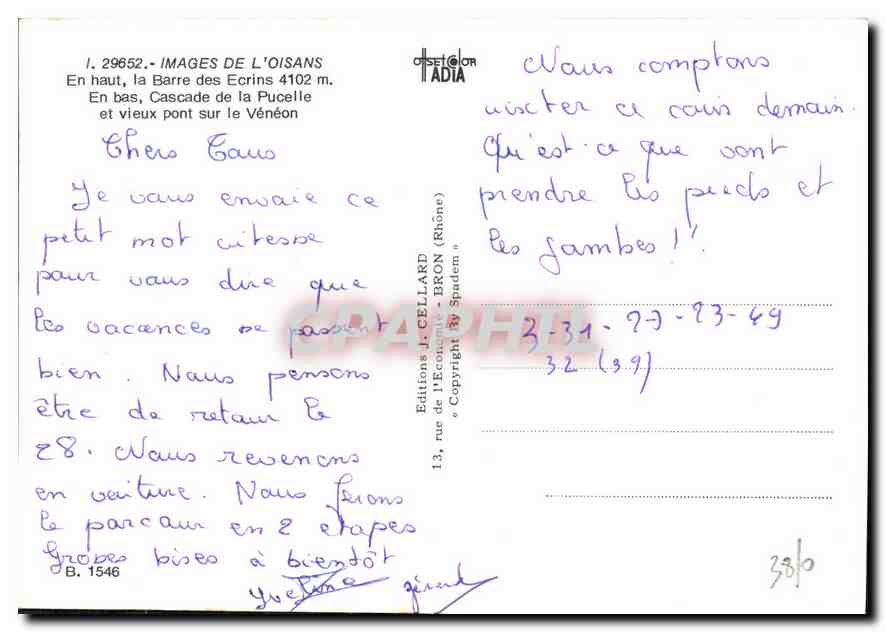 I. 29652.- IMAGES DE L'OISANS
En haut, la Barre des Ecrins 4102 m.
En bas, Cascade de la Pucelle
et vieux pont sur le Vénéon
Chers Tous
Je vous envoie ce
petit mot vitesse
pour vous dire que
les vacances se passent
bien. Nous pensons
être de retour le
28. Nous revenons
en voiture. Nous ferons
le parcour en 2 etapes
Grosses bises à bientôt
Yveline Gérard
B. 1546
OFFSETCOLOR
ADIA
Editions J. CELLARD
13, rue de l'Economie - BRON (Rhône)
« Copyright By Spadem »
Nous comptons
visiter ce coin demain.
Qu'est-ce que vont
prendre les pieds et
les jambes !!
3-31-27-23-49
32 (39)
38/0
CPAPHIL